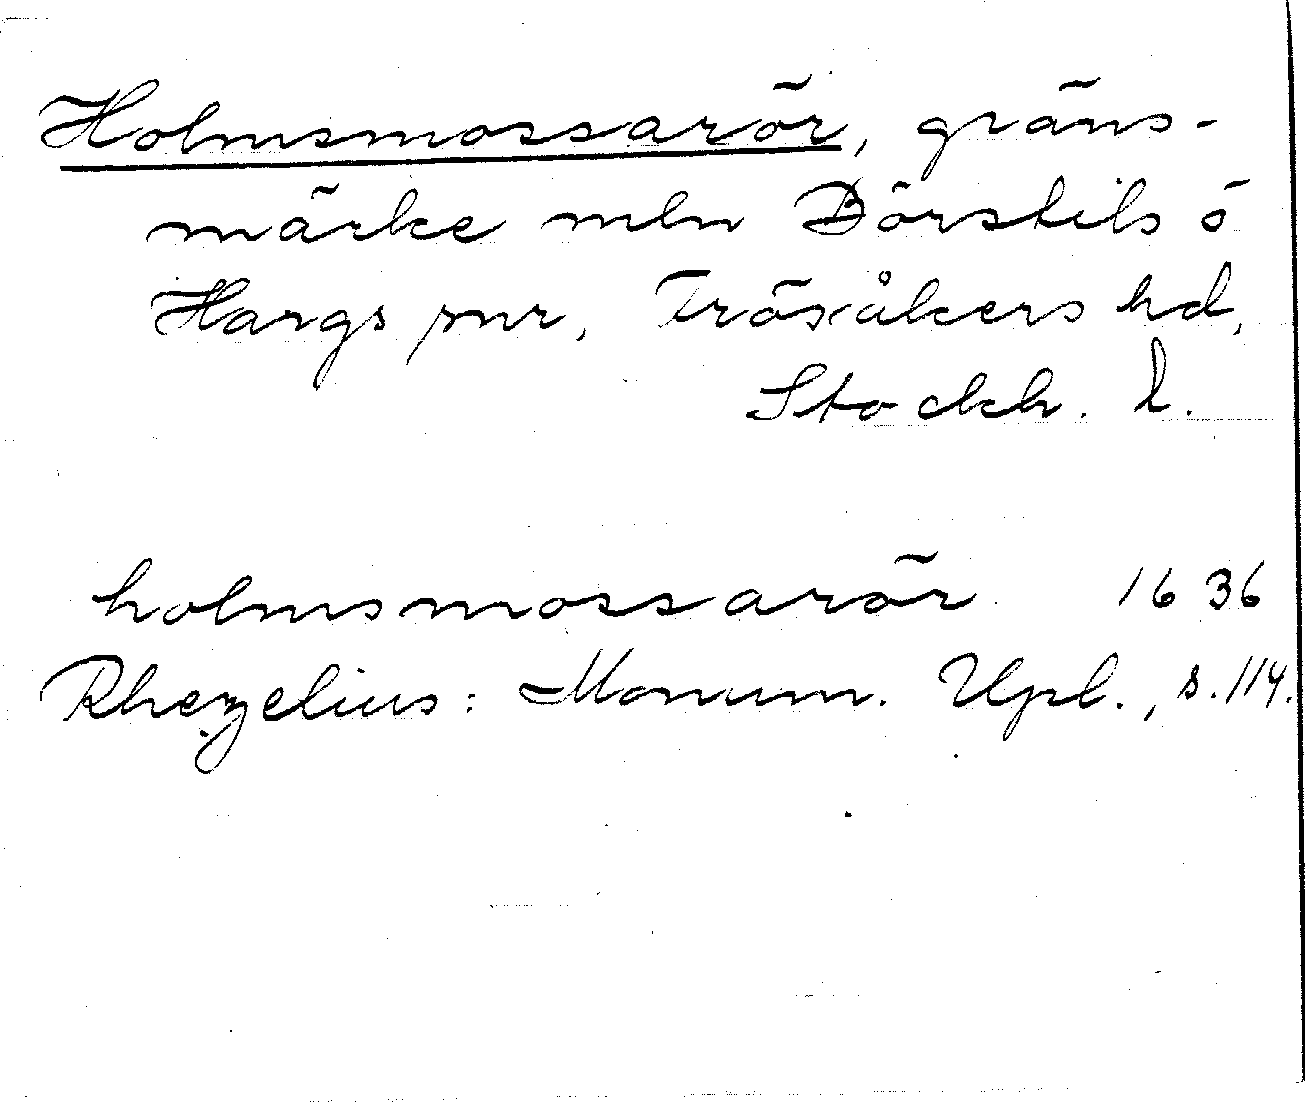 Holmsmossarör, gräns-
märke mln Börstils ö
Hargs snr, Frösåkers hd,
Stockh. l.
holmsmossarör 1636
Rhezelius: Monum. Upl., s. 114.